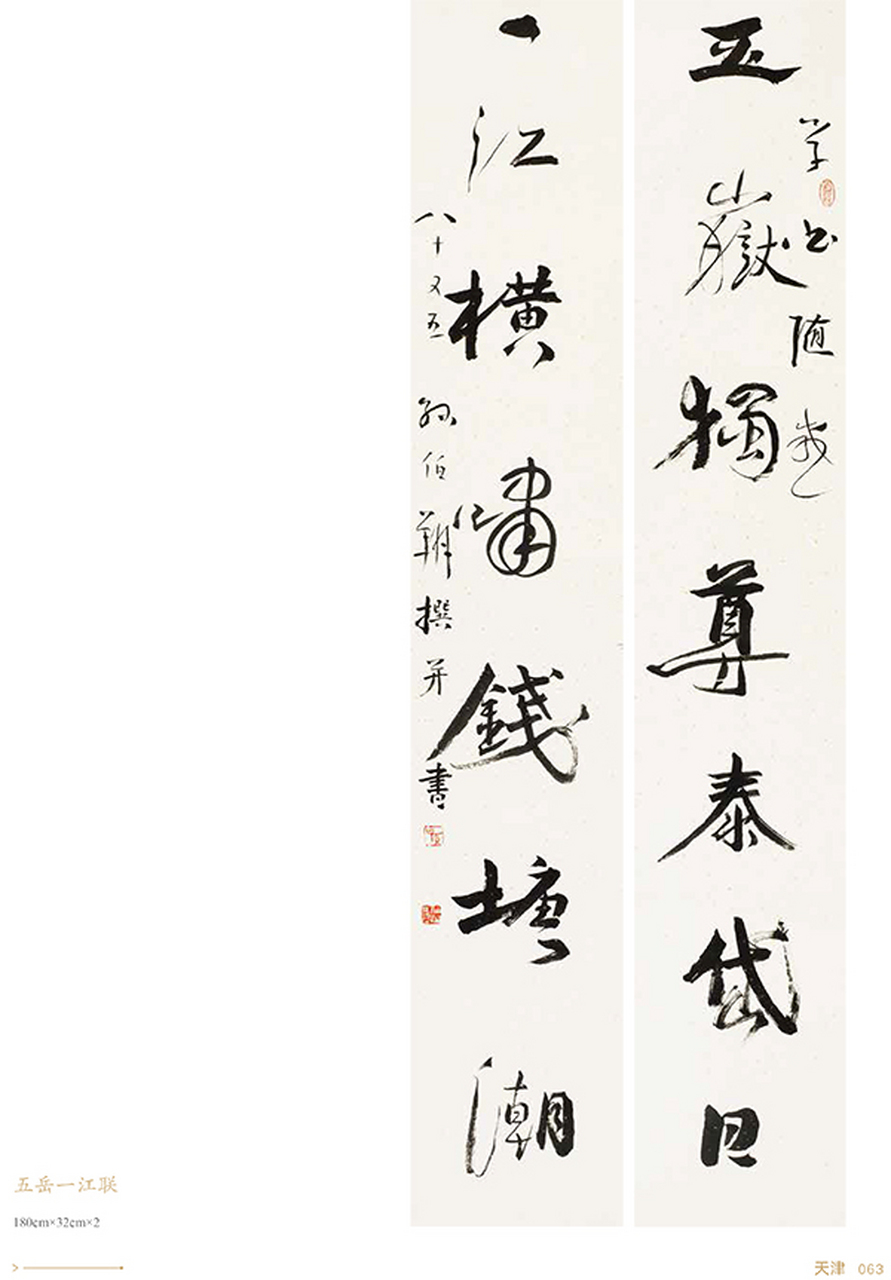 学书随感
五嶽獨尊泰岱日
一江横嘯錢塘潮
八十又五孫伯翔撰并書
五岳一江联
180cm×32cm×2
天津 063